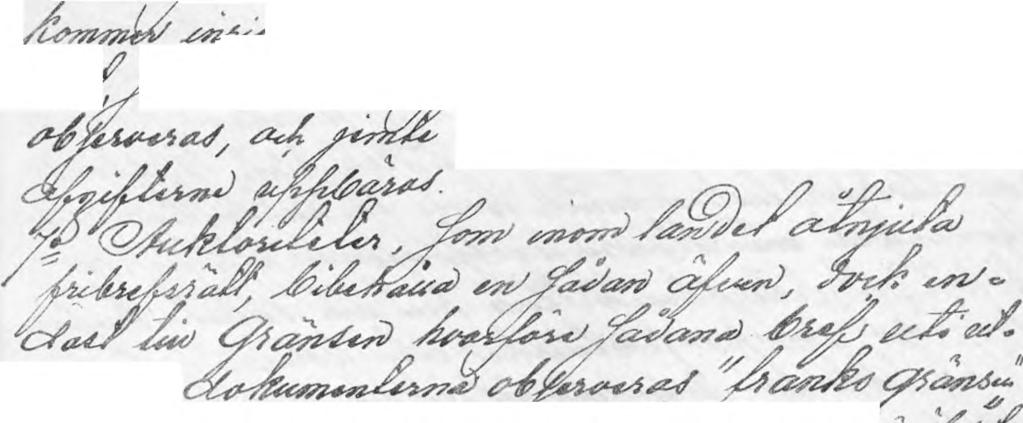 kommer
observeras, och jemte
afgifterne uppbäras.
7º Auktoriteter, som inom landet åtnjuta
fribrefsrätt, bibehålla en sådan äfven, dock en-
dast till Gränsen hvarföre sådana bref uti ut-
dokumenterna observeras "franko gränsen"